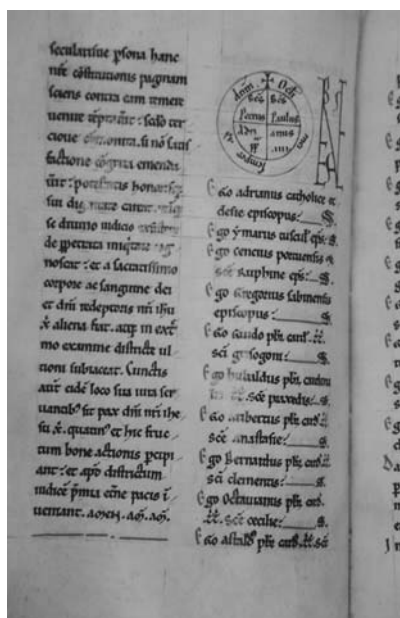 seculariſue pſona hanc
nr̄e cōſtitutionis paginam
sciens contra eam temere
uenire tēptauit : scđo ter
cioue si nō satis
factione cōgrua emenda
uit : poteſtatis honoriſq;
sui dignitate careat
se diuino iudicio
de ꝑpetrata iniquitate cog
noſcat : et a sacratiſſimo
corpore ac sanguine dei
et dn̄i redeptoris nr̄i ihu
x̄ aliena fiat. atq; in extre
mo examine diſtricte ul
tioni subiaceat. Cunctis
aūt eidē loco sua iura ser
uantibꝰ sit pax dn̄i nr̄i ihe
su x̄. quatinꝰ et hic fruc
tum bone actionis ꝑcipi
ant : et apđ diſtrictum
iudicē p̄mia et̄ne pacis ī
ueniant. AMEN. AM̄. AM̄.
Oculi
dn̄m
semper ad
scs̄ scs̄
Petrus Paulus
Adri anus
PP̄ .IIII.
Ego adrianus catholice ec
clesie episcopus
Ego ymarus tuscul̄ ep̄s
Ego cencius portuensis &
scē rufine ep̄s
Ego Gregorius sabinensis
episcopus
Ego Guido pb̄r card̄. tt̄.
sc̄i grisogoni
Ego hubaldus pb̄r cardin̄
tt̄. scē praxedis
Ego aribertus pb̄r card̄ tt̄
scē anaſtasie
Ego Bernardus pb̄r card̄ tt̄
sc̄i clementis
Ego Octauianus pb̄r card̄.
tt̄. scē cecilie
Ego aſtaldꝰ pb̄r card̄. tt̄. scē